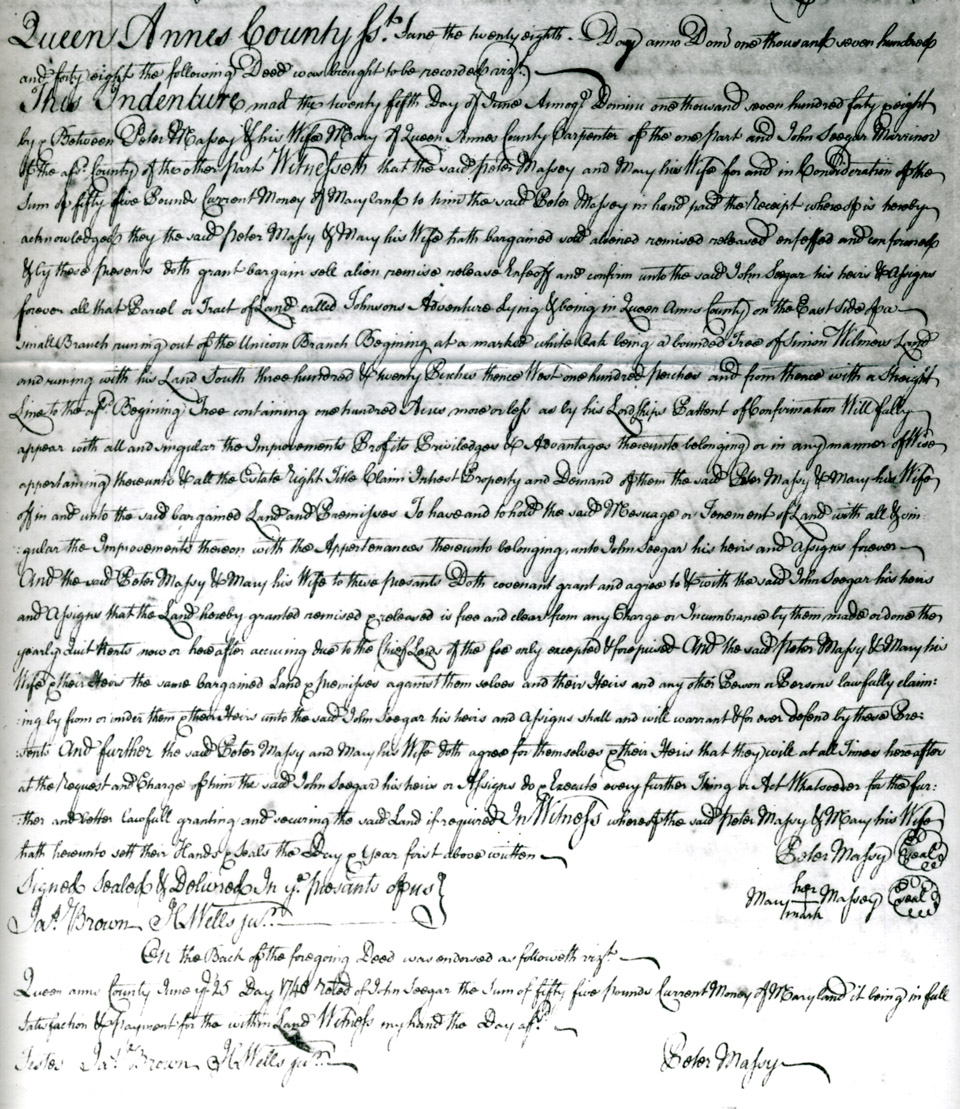 Queen Annes County ss.t June the twenty eighth Day anno Dom one thousand seven hundred
and forty eight the following Deed was brought to be recorded viz.t
This Indenture mad the twenty fifth Day of June Annoq.e Domini one thousand seven hundred forty & eight
by & Between Peter Massey & his Wife Mary of Queen Annes County Carpenter of the one part and John Seegar Marrinor
of the afs.d County of the other part Witnesseth that the said Peter Massey and Mary his Wife for and in Consideration of the
Sum of fifty five Pounds Current Money of Maryland to him the said Peter Massey in hand paid the Receipt whereof is hereby
acknowledged they the said Peter Massy & Mary his Wife hath bargained sold aliened remised released enfeffed and conformed
& by these presents doth grant bargain sell alien remise release Enfeoff and confirm unto the said John Seegar his heirs & Assigns
forever all that Parcel or Tract of Land called Johnsons Adventure Lying & being in Queen Anns County on the East Side of a
small Branch runing out of the Unicorn Branch Begining at a marked white Oak being a bounded Tree of Simon Wilmers Land
and runing with his Land South three hundred & twenty Pirches thence West one hundred perches and from thence with a Streight
Line to the afs.d Begining Tree containing one hundred Acres more or less as by his Lordships Pattent of Confirmation Will fully
appear with all and singular the Improvements Profits Priviledges & Advantages thereunto belonging or in any manner of Wise
appertaining thereunto & all the Estate Right Title Claim Intrest Property and Demand of them the said Peter Massy & Mary his Wife
of in and unto the said bargained Land and Premisses To have and to hold the said Mesuage or Tenement of Land with all & sin:
:gular the Improvements thereon with the Appertenances thereunto belonging unto John Seegar his heirs and Assigns forever
And the said Peter Massy & Mary his Wife to these presants Doth covenant grant and agree to & with the said John Seegar his heirs
and Assigns that the Land hereby granted remised & released is free and clear from any Charge or Incumbrance by them made or done the
yearly Quit Rents now or hereafter accruing due to the Chief Lords of the fee only excepted & foreprised And the said Peter Massy & Mary his
Wife & their Heirs the same bargained Land & premisses against them selves and their Heirs and any other Person or Persons lawfully claim:
:ing by from or under them & their Heirs unto the said John Seegar his heirs and Assigns shall and will warrant & for ever defend by these Pre:
:sents And further the said Peter Massy and Mary his Wife doth agree for themselves & their Heris that they will at all Times hereafter
at the Request and Charge of him the said John Seegar his heirs or Assigns do & Execute every further Thing or Act Whatsoever for the fur:
:ther and better lawfull granting and securing the said Land if required In Witness whereof the said Peter Massy & Mary his Wife
hath hereunto sett their Hands & Seals the Day & Year first above written
Peter Massy Seal
Signed Sealed & Delivred In y.e presants of us
Mary her mark Massey seal
Ja.s Brown H Wells jun.r
On the Back of the foregoing Deed was endorsed as followeth viz.t
Queen anns County June y.e 25 Day 1748 Rcted of John Seegar the Sum of fifty five pounds Current Money of Maryland it being in full
Satisfaction & payment for the within Land Witness my hand the Day afs.d
Testes Ja.s Brown H Wells jun.r Peter Massy